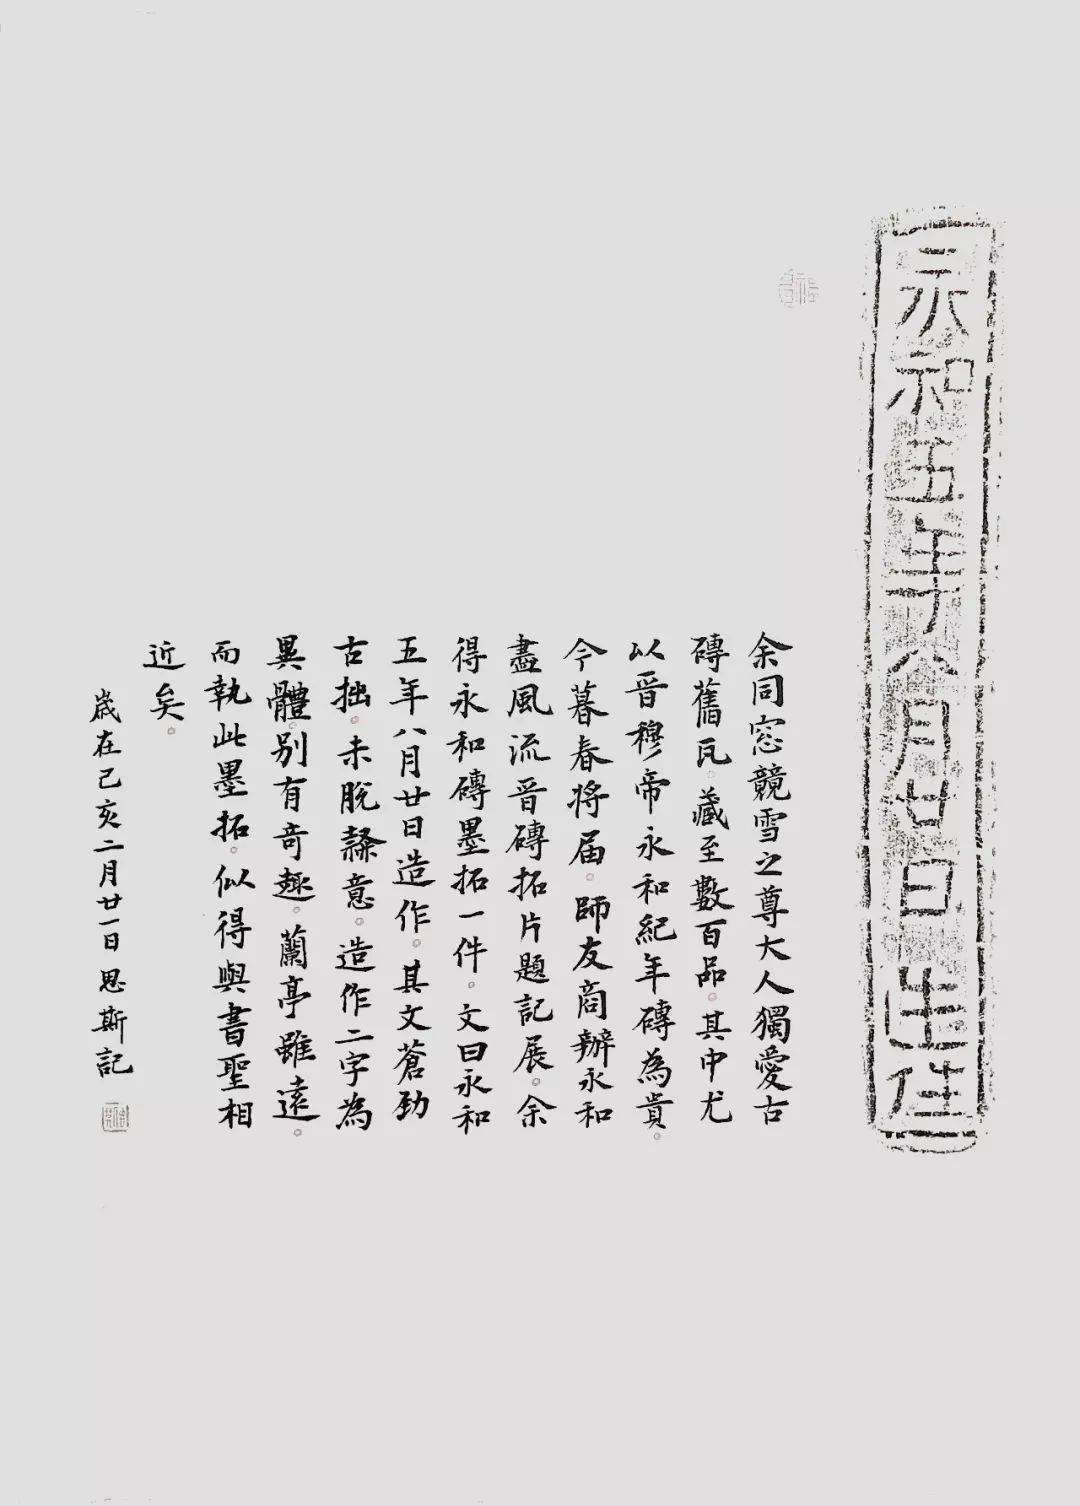 永和五年八月廿日造作
余同窓競雪之尊大人獨愛古
磚舊瓦。藏至數百品。其中尤
以晉穆帝永和紀年磚為貴。
今暮春將届。師友商辦永和
盡風流晉磚拓片題記展。余
得永和磚墨拓一件。文曰永和
五年八月廿日造作。其文蒼勁
古拙。未脫隸意。造作二字為
異體。别有奇趣。蘭亭雖遠。
而執此墨拓。似得與書聖相
近矣。
歲在己亥二月廿一日思斯記